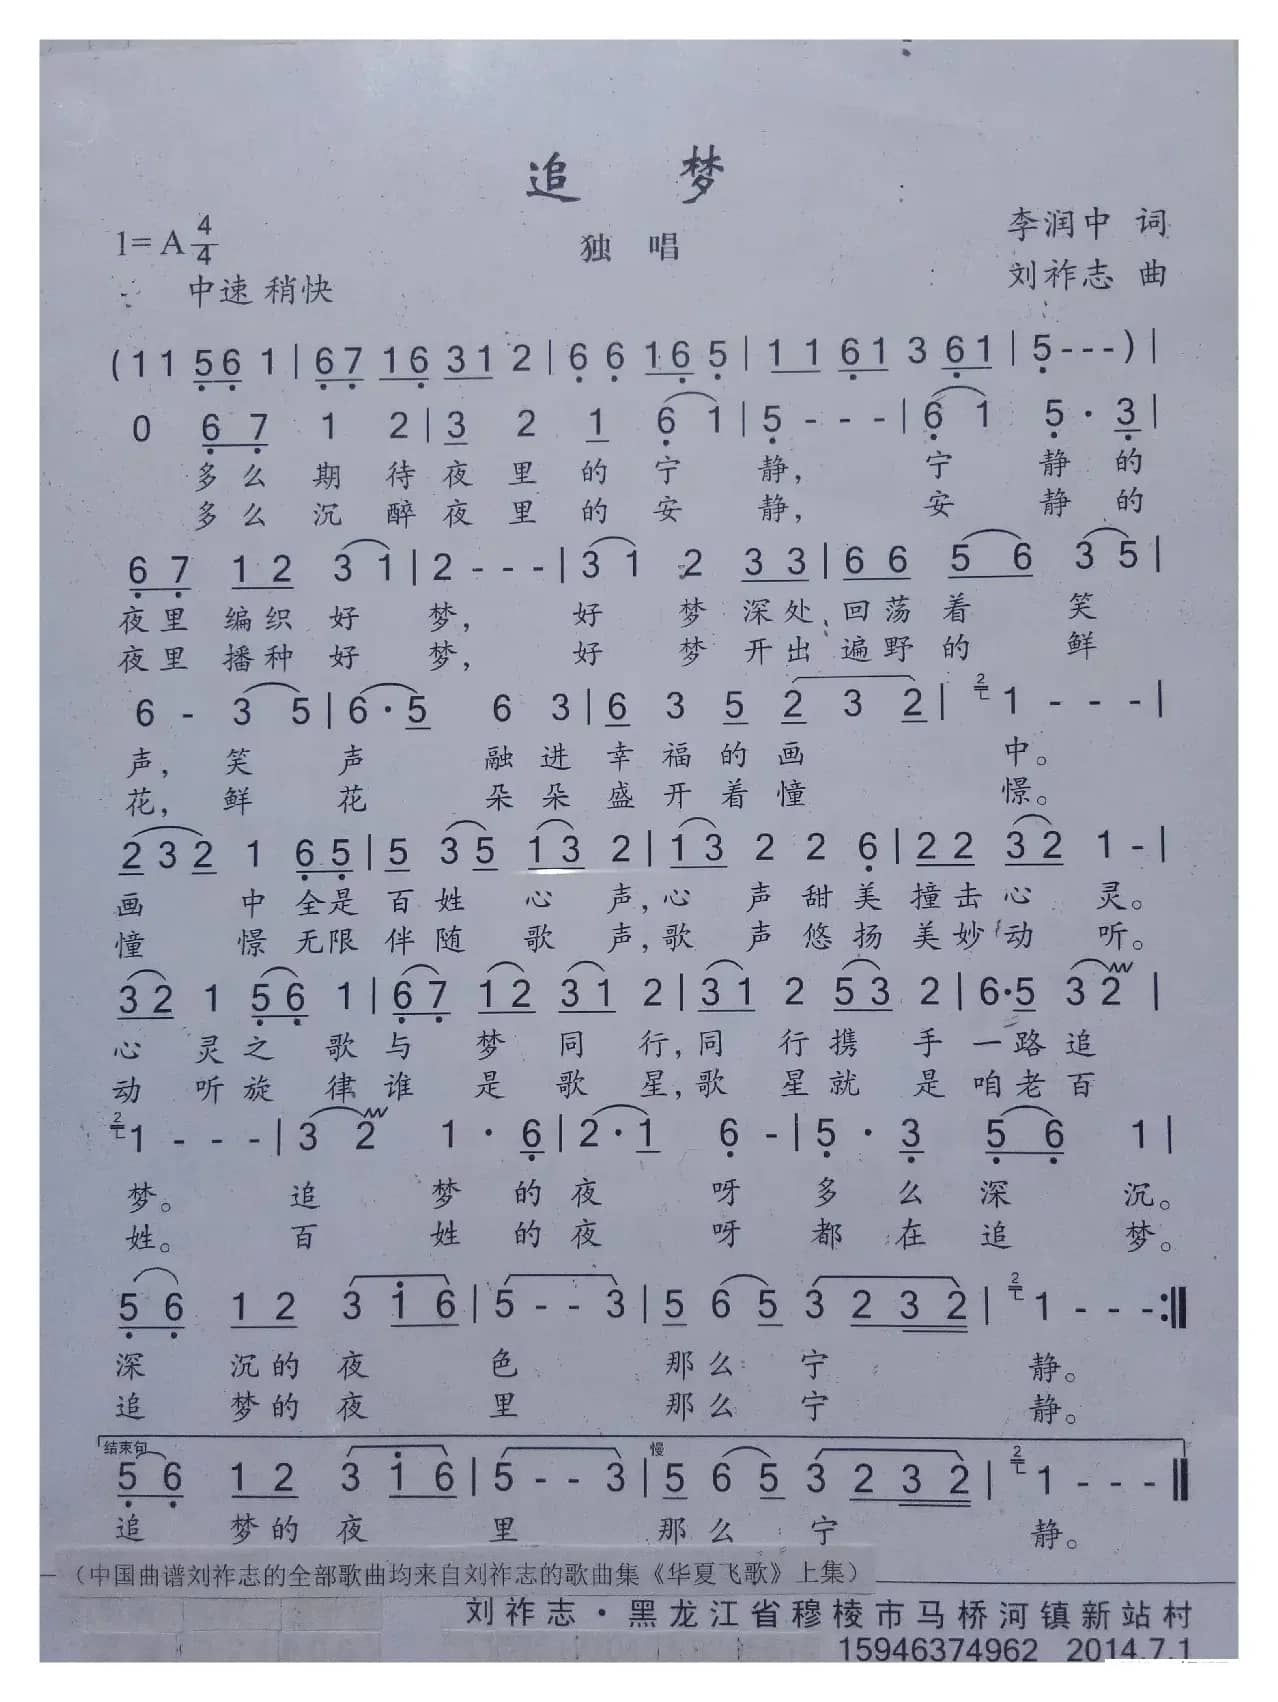 追 梦
1=A 4/4
独 唱
李润中 词
中速 稍快
刘祚志 曲
(1 1 5 6 1 | 6 7 1 6 3 1 2 | 6 6 1 6 5 | 1 1 6 1 3 6 1 | 5 - - - ) |
0 6 7 1 2 | 3 2 1 6 1 | 5 - - - | 6 1 5 · 3 |
多么期待夜里的宁静，宁静的
多么沉醉夜里的安静，安静的
6 7 1 2 3 1 | 2 - - - | 3 1 2 3 3 | 6 6 5 6 3 5 |
夜里编织好梦，好梦深处回荡着笑
夜里播种好梦，好梦开出遍野的鲜
6 - 3 5 | 6 · 5 6 3 | 6 3 5 2 3 2 | 2 1 - - - |
声，笑声融进幸福的画中。
花，鲜花朵朵盛开着憧憬。
2 3 2 1 6 5 | 5 3 5 1 3 2 | 1 3 2 2 6 | 2 2 3 2 1 - |
画中全是百姓心声，心声甜美撞击心灵。
憧憬无限伴随歌声，歌声悠扬美妙动听。
3 2 1 5 6 1 | 6 7 1 2 3 1 2 | 3 1 2 5 3 2 | 6 · 5 3 2 |
心灵之歌与梦同行，同行携手一路追
动听旋律谁是歌星，歌星就是咱老百
2 1 - - - | 3 2 1 · 6 | 2 · 1 6 - | 5 · 3 5 6 1 |
梦。追梦的夜呀多么深沉。
姓。百姓的夜呀都在追梦。
5 6 1 2 3 1 6 | 5 - - 3 | 5 6 5 3 2 3 2 | 2 1 - - - :||
深沉的夜色那么宁静。
追梦的夜里那么宁静。
结束句 慢
5 6 1 2 3 1 6 | 5 - - 3 | 5 6 5 3 2 3 2 | 2 1 - - - ||
追梦的夜里那么宁静。
（中国曲谱刘祚志的全部歌曲均来自刘祚志的歌曲集《华夏飞歌》上集）
刘祚志·黑龙江省穆棱市马桥河镇新站村
15946374962 2014.7.1